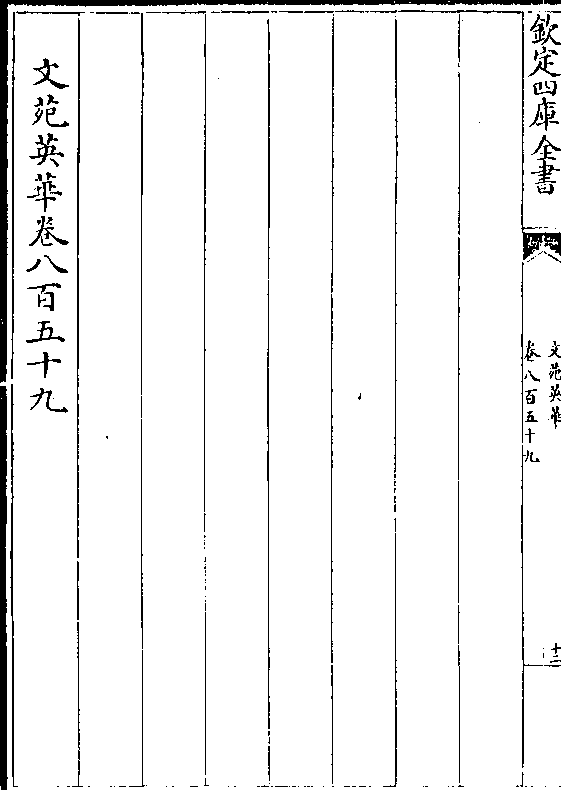 欽定四庫全書
文苑英華
卷八百五十九
十二
文苑英華卷八百五十九